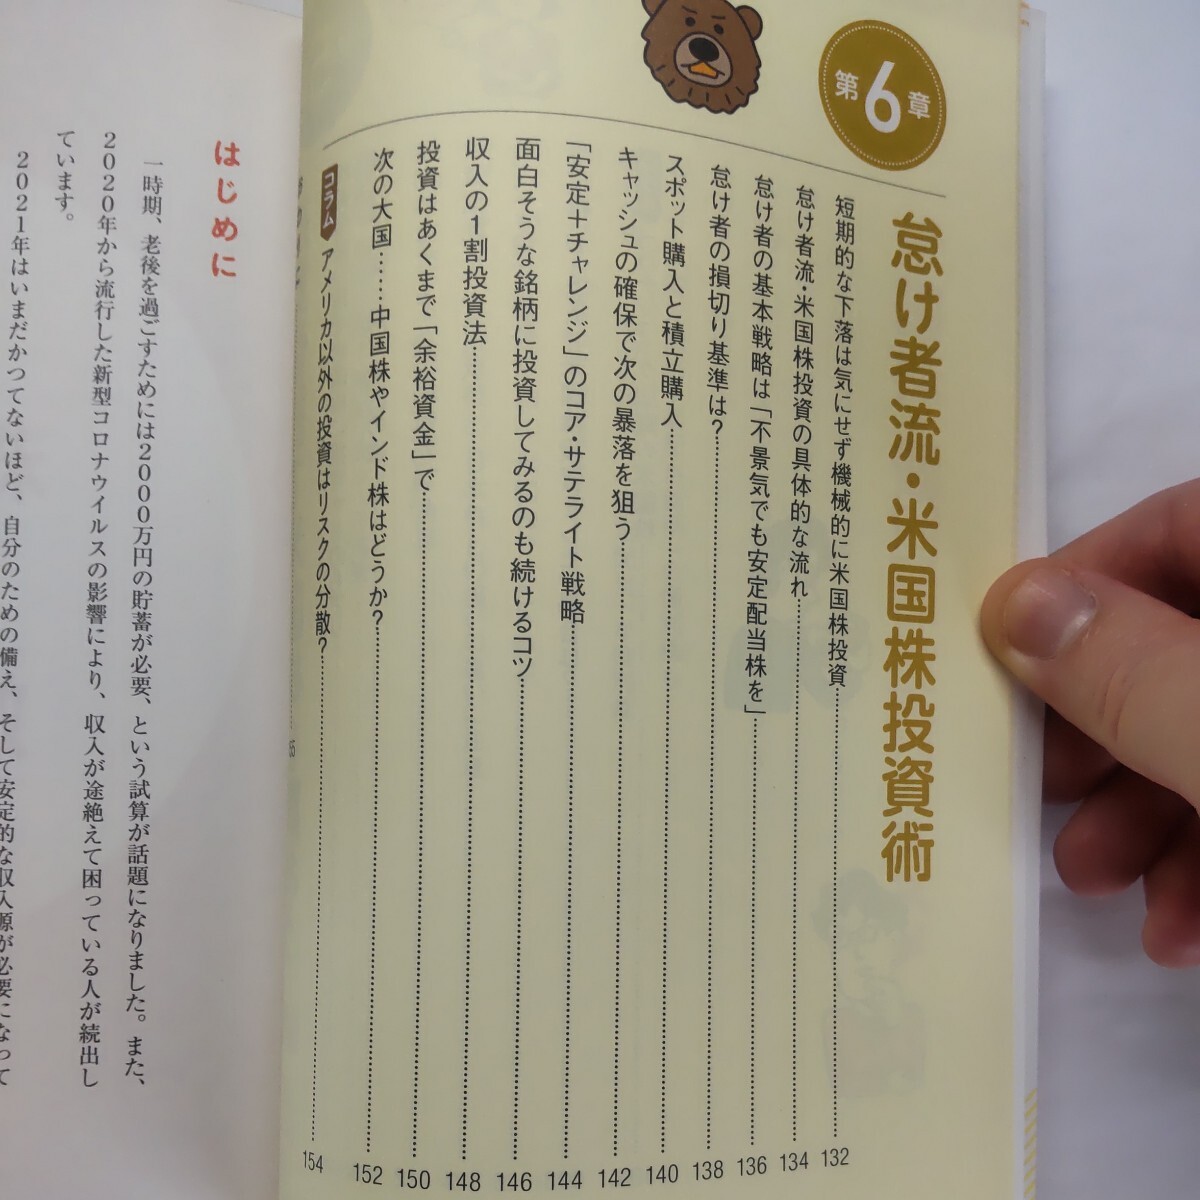 第6章
怠け者流・米国株投資術
短期的な下落は気にせず機械的に米国株投資 132
怠け者流・米国株投資の具体的な流れ 134
怠け者の基本戦略は「不景気でも安定配当株を」 136
怠け者の損切り基準は? 138
スポット購入と積立購入 140
キャッシュの確保で次の暴落を狙う 142
「安定＋チャレンジ」のコア・サテライト戦略 144
面白そうな銘柄に投資してみるのも続けるコツ 146
収入の1割投資法 148
投資はあくまで「余裕資金」で 150
次の大国……中国株やインド株はどうか? 152
コラム アメリカ以外の投資はリスクの分散? 154
はじめに
一時期、老後を過ごすためには2000万円の貯蓄が必要、という試算が話題になりました。また、
2020年から流行した新型コロナウイルスの影響により、収入が途絶えて困っている人が続出し
ています。
2021年はいまだかつてないほど、自分のための備え、そして安定的な収入源が必要になって